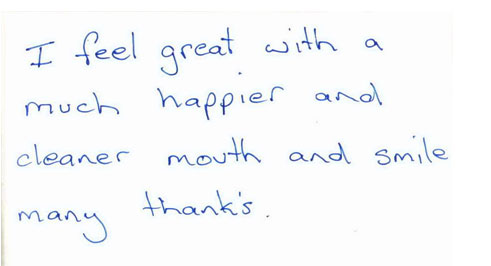 I feel great with a
much happier and
cleaner mouth and smile
many thank's.